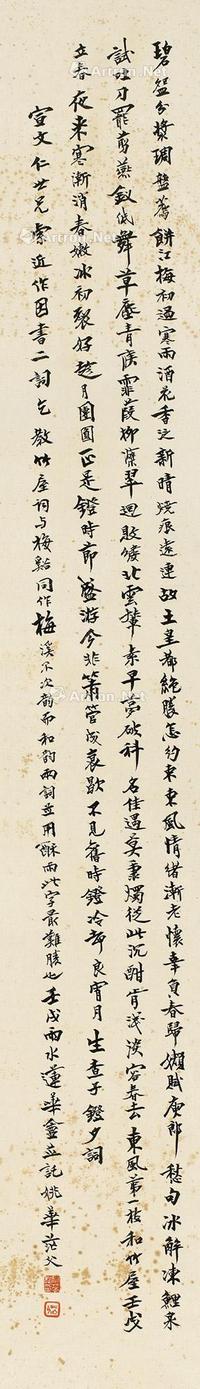 碧盌分漿琱盤薦餅江梅初過寒雨酒花季泛新晴燒痕遠連故土皇都絶勝怎約東東風情緒漸老懷辜負春歸嬾賦庾郎愁句冰解凍鯉泉
試杜刀罷剪燕釵低舞草塵青候霏葭柳深翠迴殿倰北雲輦素早夢破科名佳遇莫秉燭從此沉酣肯淺淡容春去東風第一枝和竹屋壬戌
立春夜來寒漸消春嫩冰初裂好趁月團圓正是鐙時節盛游今非簫管成哀歇不見舊時鐙冷却良宵月生查子鐙夕詞
宣文仁世兄索近作因書二詞乞教竹屋詞与梅谿同作梅溪不次韵而和韵兩詞並用酥雨此字最難勝也壬戌雨水蓮華盦並記姚華茫父